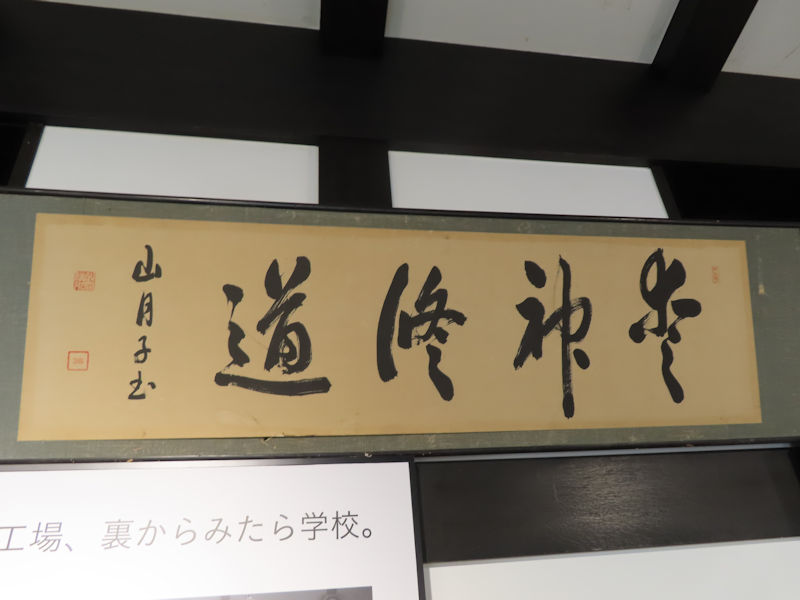 養神修道
山月子書
工場、裏からみたら学校。